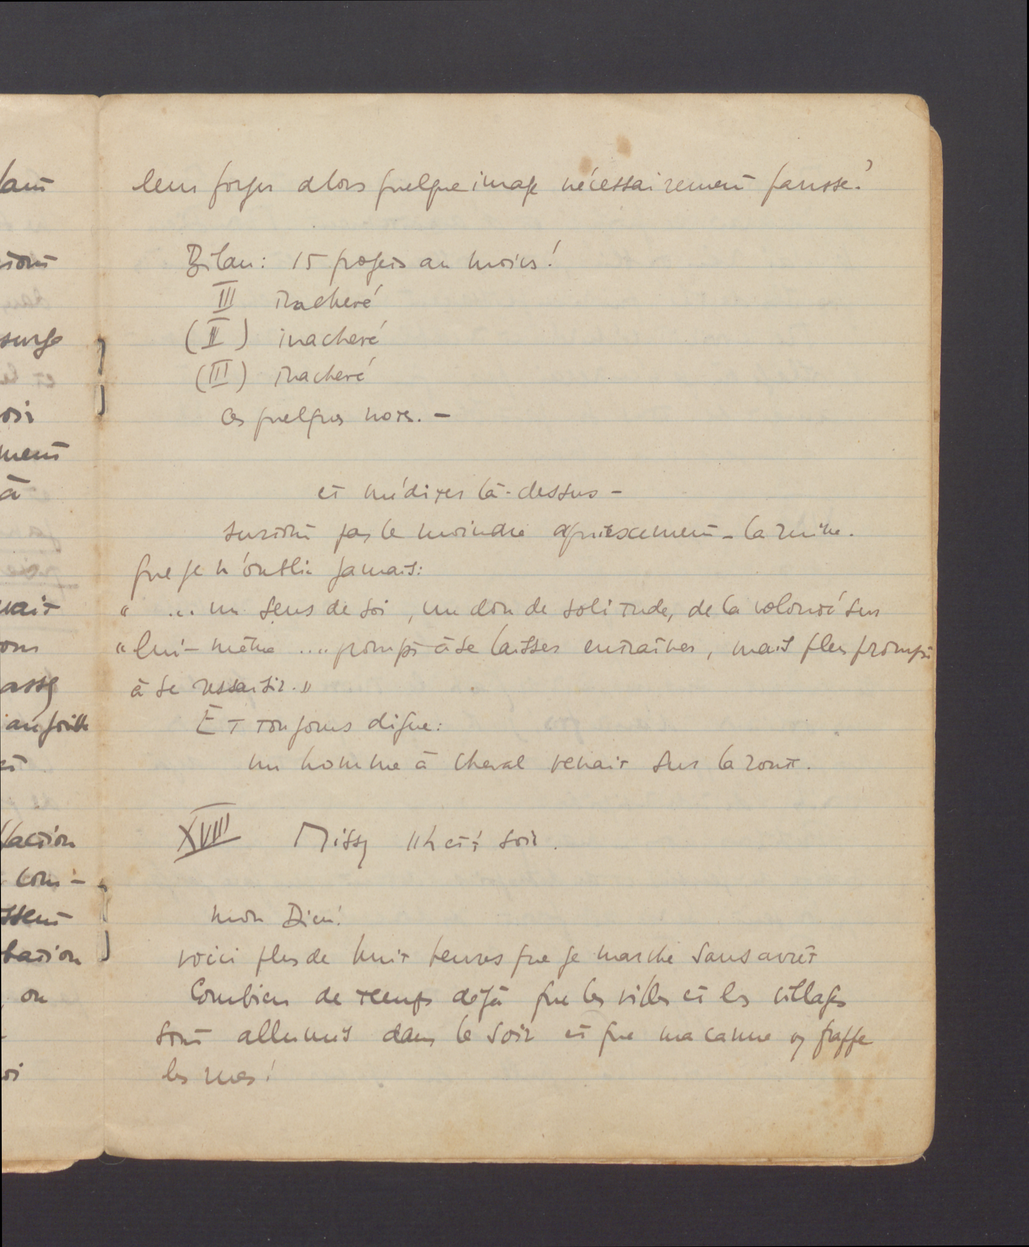 leur forger alors quelque image nécessairement fausse?
Bilan: 15 projets au moins!
III inachevé
(II) inachevé
(III) inachevé
Ces quelques notes. –
et méditer là-dessus –
surtout pas le moindre acquiescement – la ruine.
que je n'oublie jamais:
" ... un sens de soi, un don de solitude, de la volonté sur
"lui-même .... prompt à se laisser entraîner, mais plus prompt
à se ressaisir."
Et toujours digne:
un homme à cheval venait sur la route.
XVIII Missy soir.
mon Dieu!
voici plus de huit heures que je marche sans arrêt
Combien de temps déjà que les villes et les villages
sont allumés dans le soir et que ma canne y frappe
les rues!
lant
surge
soi
ment
à
vait
ons
assy
et
l'action
com-
ssent
bation
on
oi